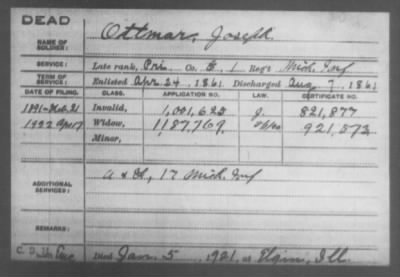 DEAD
NAME OF SOLDIER: Ottmar, Joseph.
SERVICE: Late rank, Pri Co. F, 1 Reg't Mich. Inf
TERM OF SERVICE: Enlisted Apr. 24, 1861 Discharged Aug 7, 1861
DATE OF FILING. CLASS. APPLICATION NO. LAW. CERTIFICATE NO.
1891-Feb. 21 Invalid, 1,001,623 g. 821,877
1922 Apr 17 Widow, 1187,769 921,572
Minor,
ADDITIONAL SERVICES: 17 Mich. Inf
REMARKS:
Died Jan. 5, 1921, at Elgin, Ill.